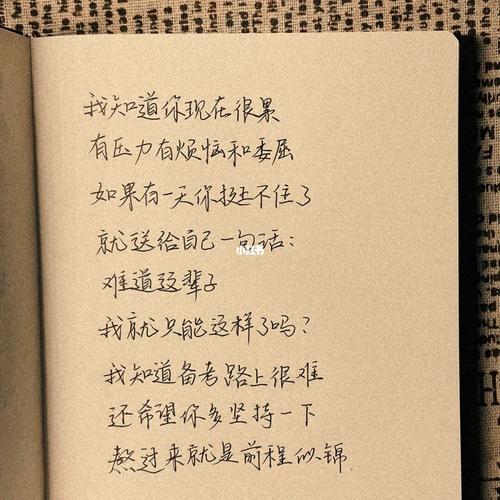 我知道你现在很累
有压力有烦恼和委屈
如果有一天你撑不住了
就送给自己一句话：
小红书
难道这辈子
我就只能这样了吗？
我知道备考路上很难
还希望你多坚持一下
熬过来就是前程似锦